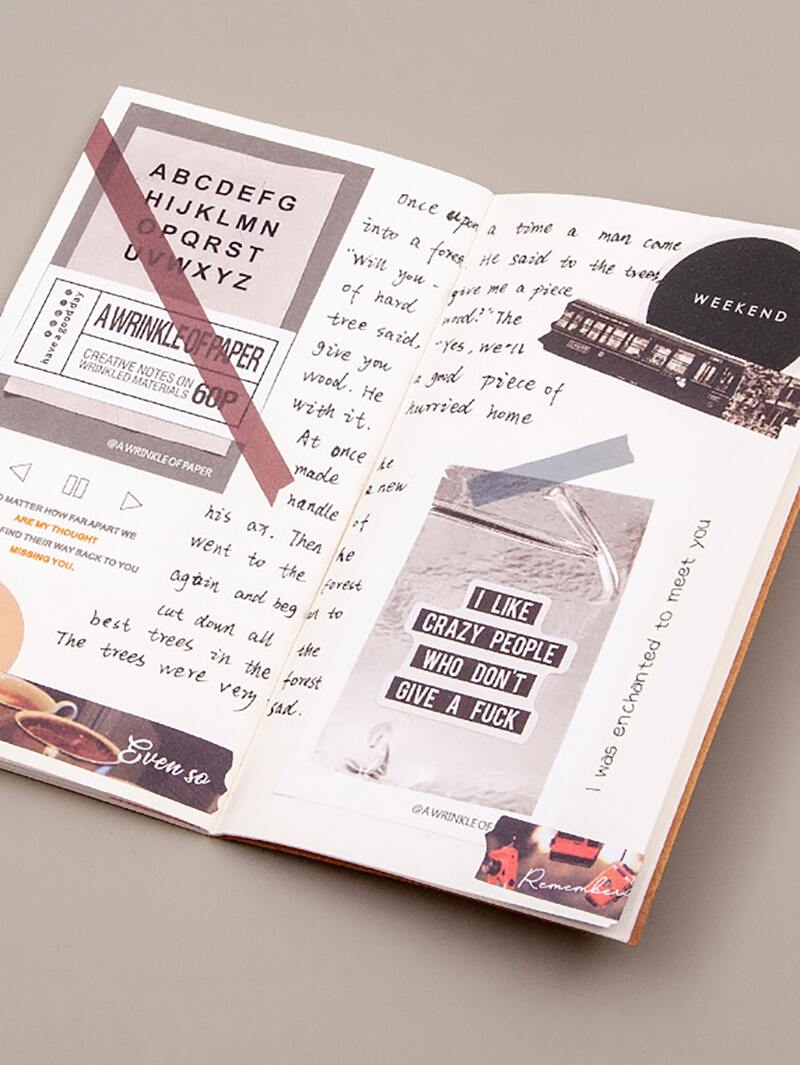 ABCDEFG
HIJKLMN
OPQRST
UVWXYZ
have a good day
A WRINKLE OF PAPER
CREATIVE NOTES ON
WRINKLED MATERIALS 60P
@AWRINKLEOFPAPER
MATTER HOW FAR APART WE
ARE MY THOUGHT
FIND THEIR WAY BACK TO YOU
MISSING YOU.
Once upon a time a man came
into a fores. He said to the trees,
"Will you - give me a piece
of hard wood?" The
tree said, "Yes, we'll
give you a good piece of
wood. He hurried home
with it.
At once he
made a new
handle of
his ax. Then he
went to the forest
again and began to
cut down all the
best trees in the forest
The trees were very sad.
Even so
WEEKEND
I LIKE
CRAZY PEOPLE
WHO DON'T
GIVE A FUCK
@AWRINKLEOF
I was enchanted to meet you
Remember